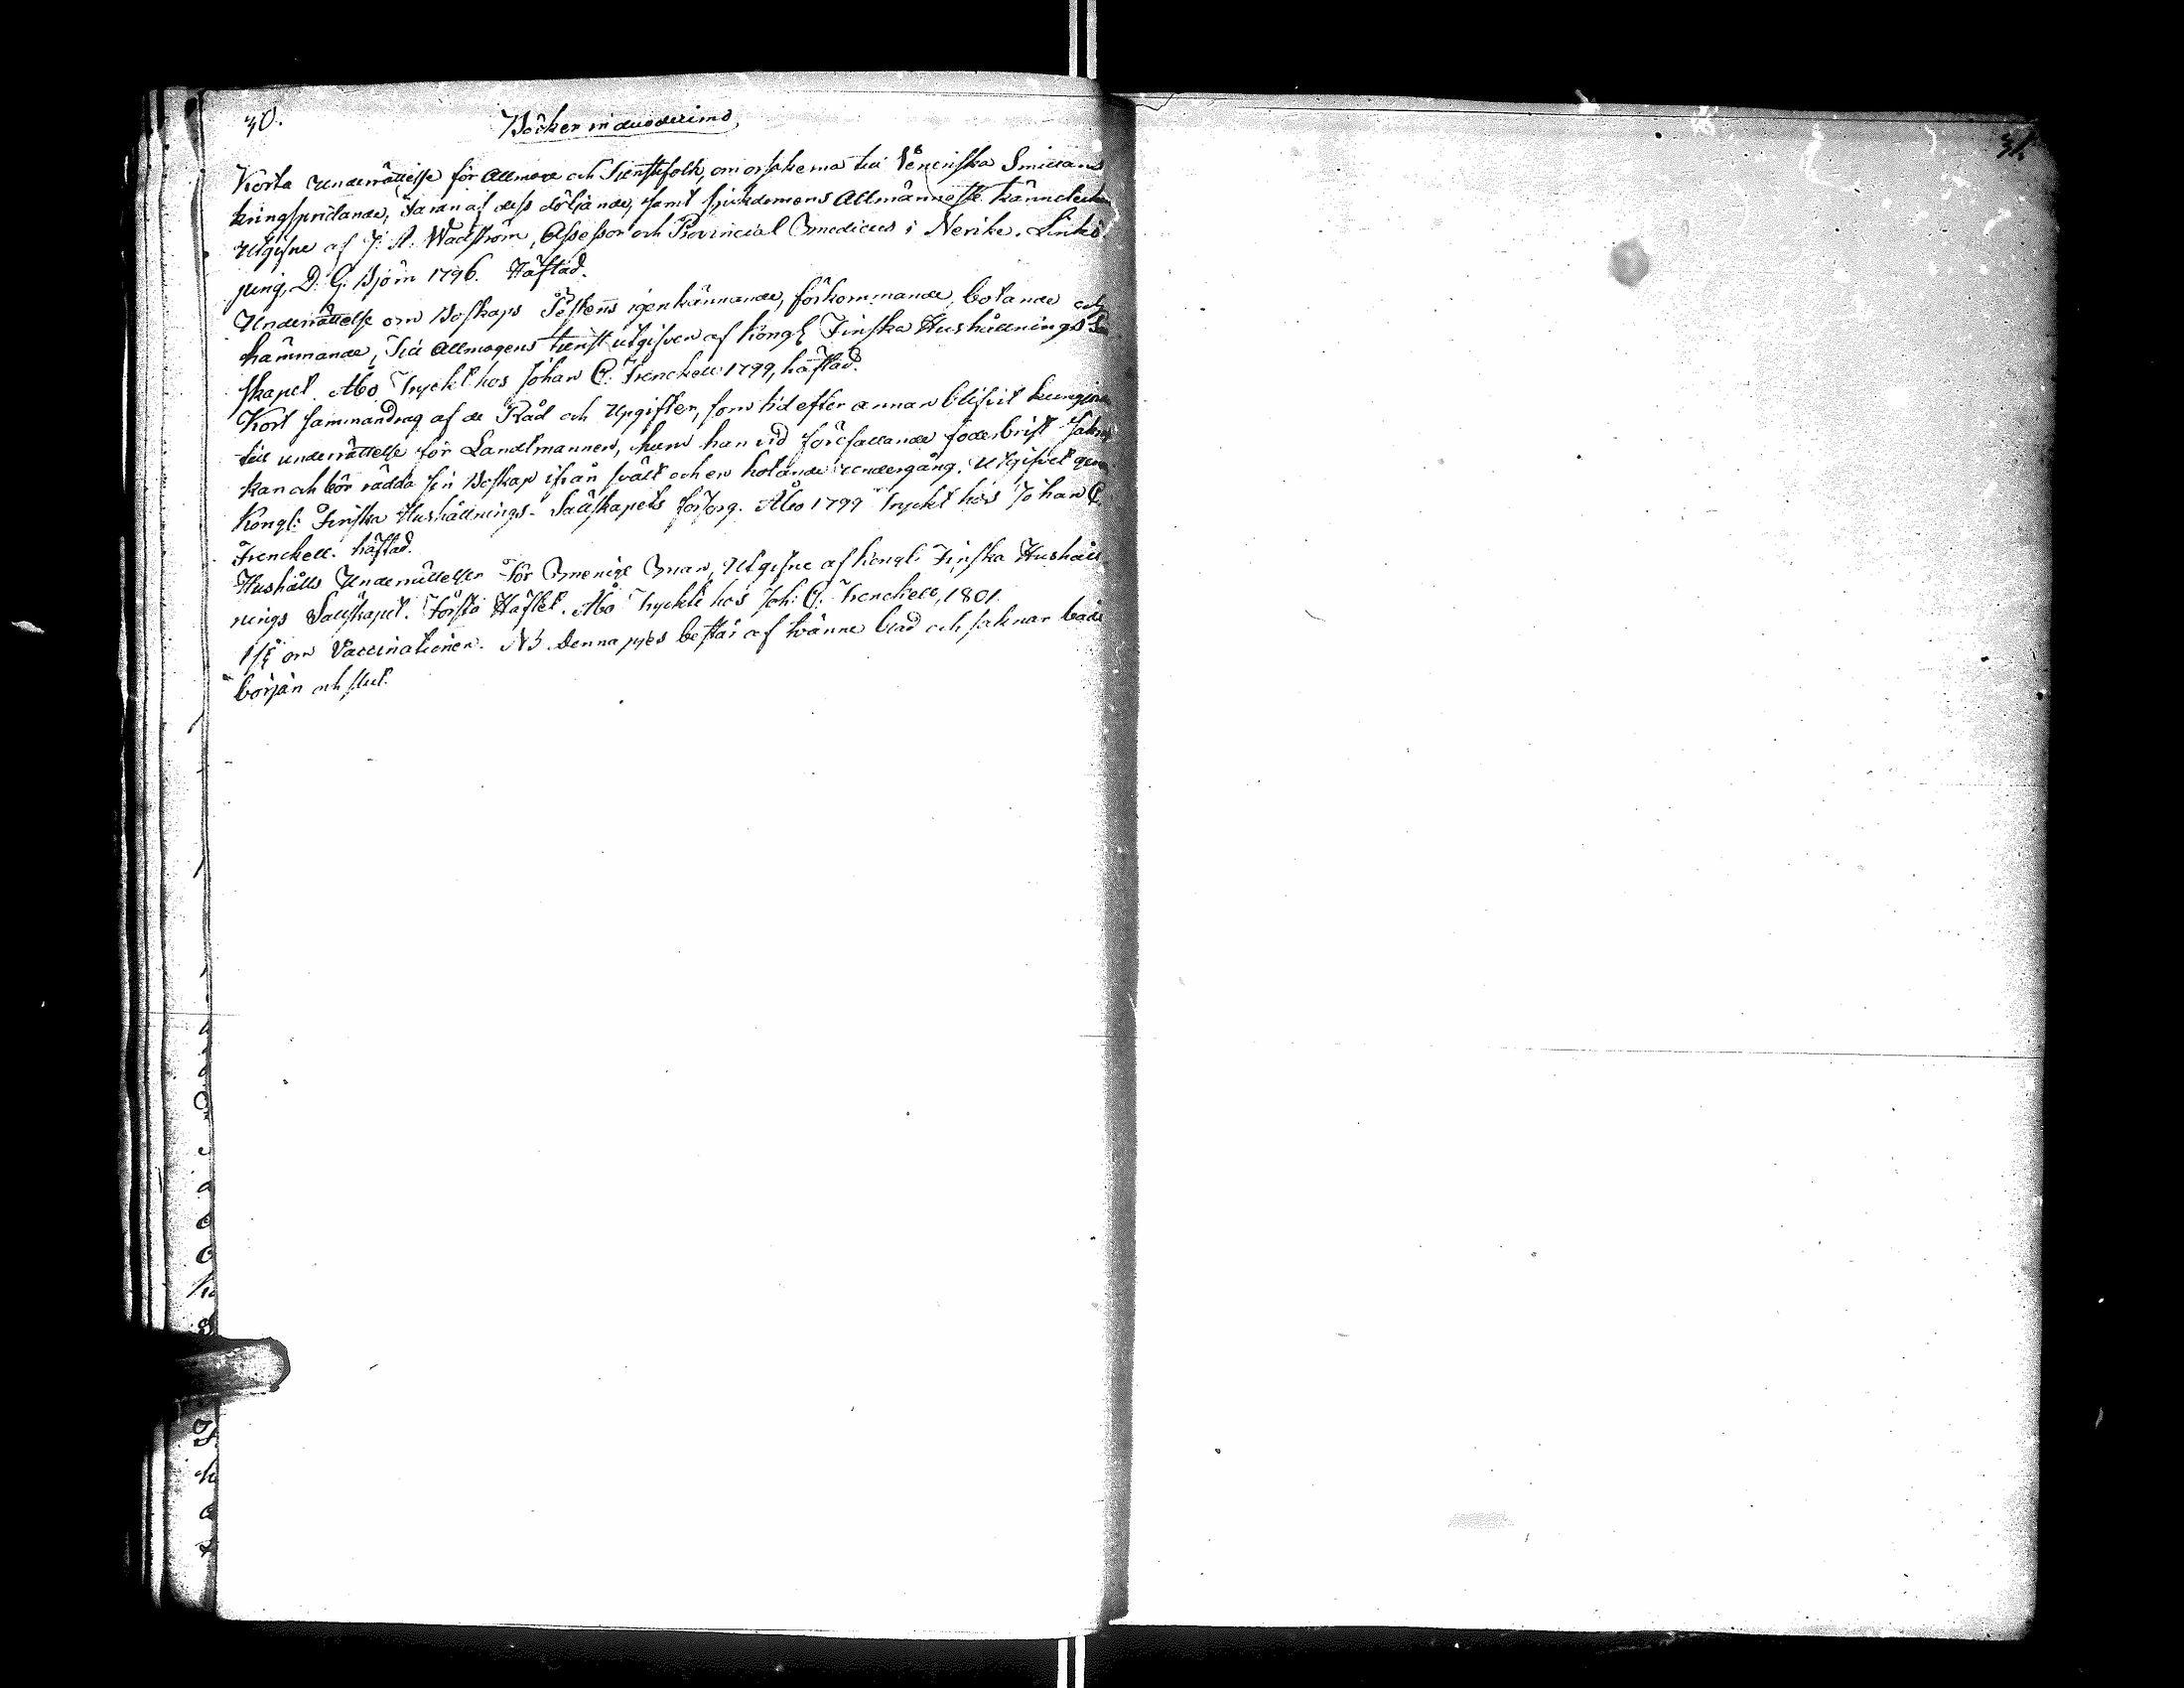 30.
Böcker in duodecimo
Korta Underrättelse för Allmoge och Tienstefolk, om orsakerna till Veneriska Smittans
kringspridande, Faran af dess döljande, samt Sjukdomens Allmännaste känneteckn
Utgifne af J. A. Wadström, Assessor och Provincial Medicus i Nerike. Linkö
ping, D. G. Björn 1796. Häftad.
Underrättelse om Boskaps Pestens igenkännande, förkommande, botande och
hämmande, Till Allmogens tienst utgifven af Kongl. Finska Hushållnings Säll
skapet. Åbo, Tryckt hos Johan C. Frenckell 1799, häftad.
Kort sammandrag af de Råd och Upgifter, som tid efter annan blifvit kungjorde
till underrättelse för Landtmannen, huru han vid förefallande foderbrist
kan och bör rädda sin Boskap ifrån svält och en hotande undergång. Utgifvet genom
Kongl: Finska Hushållnings-Sällskapets försorg. Åbo 1799 Tryckt hos Johan C.
Frenckell. häftad.
Hushålls Underrättelser för Menige Man, Utgifne af Kongl. Finska Hushåll
nings Sällskapet. Första Häftet. Åbo Tryckte hos Joh: C: Frenckell, 1801.
om Vaccinationen. NB. Denna pjes består af tvänne blad och saknar både
början och slut.
31.